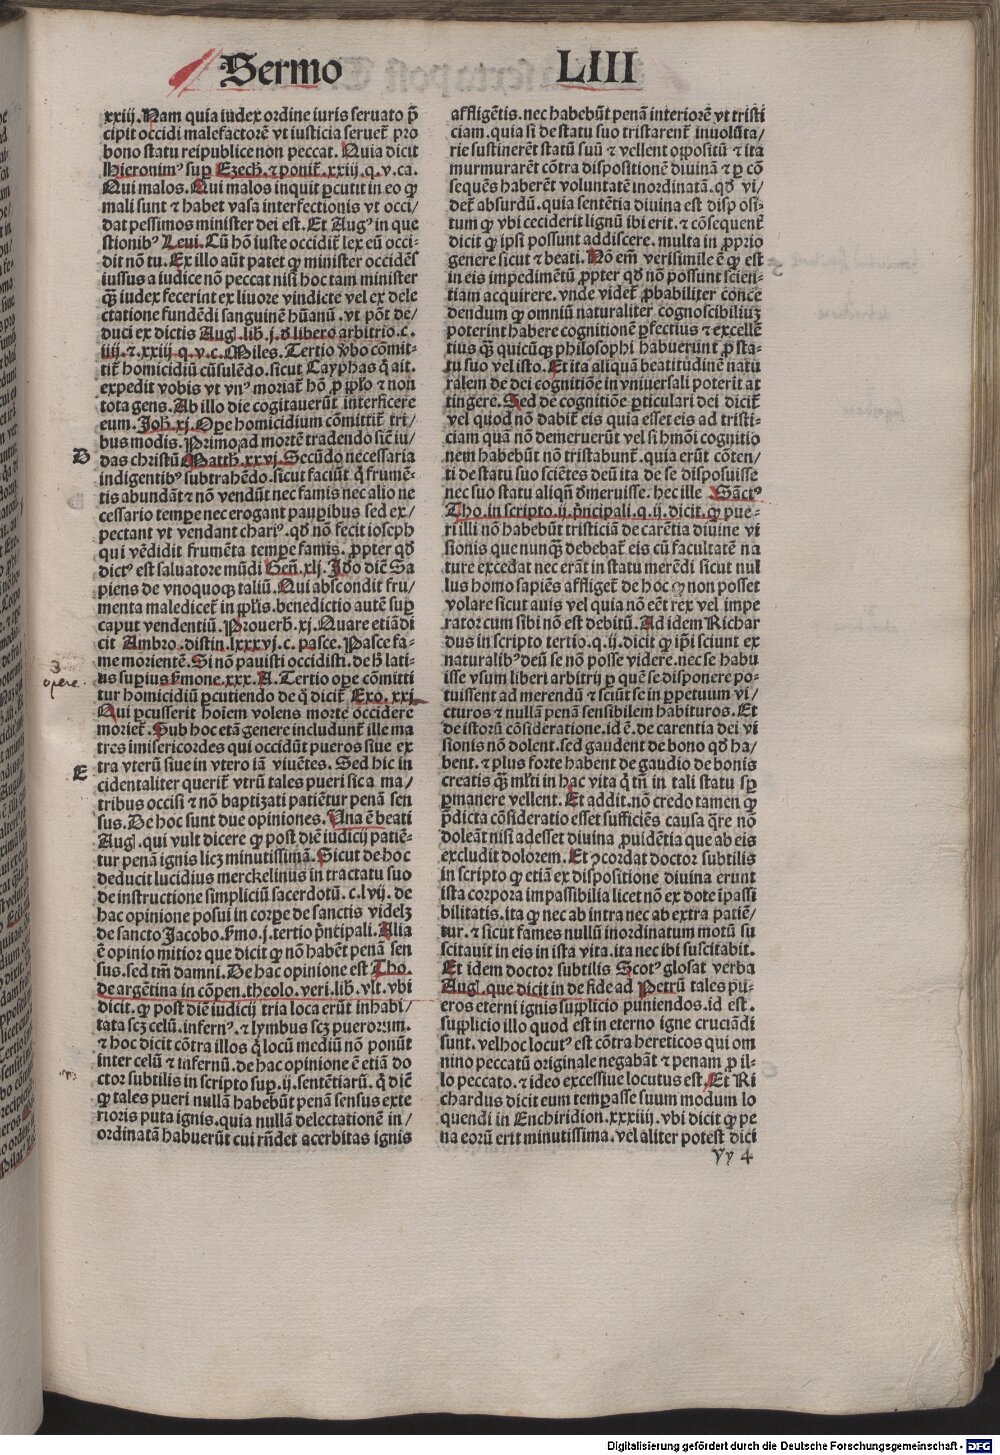 Sermo LIII
xxiij. Nam quia iudex ordine iuris seruato p̄
cipit occidi malefactorē vt iusticia serueť pro
bono statu reipublice non peccat. Quia dicit
Hieronimꝰ suꝑ Ezech. ⁊ poniť. xxiij. q. v. ca.
Qui malos. Qui malos inquit ꝑcutit in eo ꝙ
mali sunt ⁊ habet vasa interfectionis vt occi/
dat pessimos minister dei est. Et Augꝰ in que
stionibꝰ Leui. Cū hō iuste occidiť lex eū occi-
dit nō tu. Ex illo aūt patet ꝙ minister occidēs
iussus a iudice nō peccat nisi hoc tam minister
q̄ꝫ iudex fecerint ex liuore vindicte vel ex dele
ctatione fundēdi sanguinē hūanū. vt pōt de/
duci ex dictis Augꝉ. lib. j. đ libero arbitrio. c.
iiij. ⁊. xxiij. q. v. c. Miles. Tertio ỽbo cōmit-
tiť homicidiū cōsulēdo. sicut Cayphas q̇ ait.
expedit vobis vt vnꝰ moriať hō ꝓ ꝓpl̄o ⁊ non
tota gens. Ab illo die cogitauerūt interficere
eum. Joh. xj. Oꝑe homicidium cōmittiť tri/
bus modis. Primo ad mortē tradendo sicť iu/
das christū Matth. xxvj. Secūdo necessaria
indigentibꝰ subtrahēdo. sicut faciūt q̇ frumē-
tis abundāt ⁊ nō vendūt nec famis nec alio ne
cessario temꝑe nec erogant pauꝑibus sed ex/
pectant vt vendant chariꝰ. qđ nō fecit ioseph
qui vēdidit frumēta temꝑe famis. ꝓpter qđ
dictꝰ est saluatore mūdi Geñ. xlj. Jdo dič Sa
piens de vnoquoqꝫ taliū. Qui abscondit fru/
menta malediceť in ꝓpl̄is. benedictio autē suꝑ
caput vendentiū. Prouerb. xj. Quare etiā di
cit Ambro. distin. lxxxvj. c. pasce. Pasce fa-
me morientē. Si nō pauisti occidisti. de h̄ lati-
us suꝑius s̄mone. xxx. A. Tertio oꝑe cōmitti
tur homicidiū ꝑcutiendo de q̇ diciť Exo. xxj
Qui ꝑcusserit hoīem volens morte occidere
morieť. Sub hoc etā genere includunť ille ma
tres imisericordes qui occidūt pueros siue ex
tra vterū siue in vtero iā viuētes. Sed hic in
cidentaliter queriť vtrū tales pueri sic a ma/
tribus occisi ⁊ nō baptizati patiētur penā sen
sus. De hoc sunt due opiniones. Una ē beati
Augꝉ. qui vult dicere ꝙ post diē iudicij patiē-
tur penā ignis licꝫ minutissimā. Sicut de hoc
deducit lucidius merckelinus in tractatu suo
de instructione simpliciū sacerdotū. c. lvij. de
hac opinione posui in corꝑe de sanctis videlꝫ
de sancto Jacobo. s̄mo. j. tertio p̄ncipali. Alia
ē opinio mitior que dicit ꝙ nō habēt penā sen
sus. sed tm̄ damni. De hac opinione est Tho.
de argētina in cōpen. theolo. veri. lib. vlt. vbi
dicit. ꝙ post diē iudicij tria loca erūt inhabi/
tata scꝫ celū. infernꝰ. ⁊ lymbus scꝫ puerorum.
⁊ hoc dicit cōtra illos q̇ locū mediū nō ponūt
inter celū ⁊ infernū. de hac opinione ē etiā do
ctor subtilis in scripto suꝑ. ij. sententiarū. q̇ dič
ꝙ tales pueri nullā habebūt penā sensus exte
rioris puta ignis. quia nullā delectationē in/
ordinatā habuerūt cui rn̄det acerbitas ignis
D
E
3
opere.
affligētis. nec habebūt penā interiorē vt tristi
ciam. quia si de statu suo tristarenť inuolūta/
rie sustinerēt statū suū ⁊ vellent oppositū ⁊ ita
murmurarēt cōtra dispositionē diuinā ⁊ ꝑ cō
sequēs haberēt voluntatē inordinatā. qđ vi/
deť absurdū. quia sententia diuina est disposi-
tum ꝙ vbi ceciderit lignū ibi erit. ⁊ cōsequenť
dicit ꝙ ipsi possunt addiscere. multa in ꝓprio
genere sicut ⁊ beati. Nō em̄ verisimile ē ꝙ est
in eis impedimētū ꝓpter qđ nō possunt scien-
tiam acquirere. vnde videť ꝓbabiliter conce
dendum ꝙ omniū naturaliter cognoscibiliuꝫ
poterint habere cognitionē ꝑfectius ⁊ excellē
tius q̄ꝫ quicūqꝫ philosophi habuerunt ꝓ sta-
tu suo vel isto. Et ita aliquā beatitudinē natu
ralem de dei cognitiōe in vniuersali poterit at
tingere. Sed de cognitiōe ꝑticulari dei diciť
vel quod nō dabiť eis quia esset eis ad tristi-
ciam quā nō demeruerūt vel si hmōi cognitio
nem habebūt nō tristabunť. quia erūt cōten/
ti de statu suo sciētes deū ita de se disposuisse
nec suo statu aliqn̄ đmeruisse. hec ille Sāctꝰ
Tho. in scripto. ij. p̄ncipali. q. ij. dicit. ꝙ pue-
ri illi nō habebūt tristiciā de carētia diuine vi
sionis que nunq̄ꝫ debebať eis cū facultatē na
ture excedat nec erāt in statu merēdi sicut nul
lus homo sapiēs affligeť de hoc ꝙ non posset
volare sicut auis vel quia nō eēt rex vel impe
rator cum sibi nō est debitū. Ad idem Richar
dus in scripto tertio. q. ij. dicit ꝙ ip̄i sciunt ex
naturalibꝰ deū se nō posse videre. nec se habu
isse vsum liberi arbitrij ꝑ quē se disponere po-
tuissent ad merendū ⁊ sciūt se in ꝑpetuum vi/
cturos ⁊ nullā penā sensibilem habituros. Et
de istorū cōsideratione. id ē. de carentia dei vi
sionis nō dolent. sed gaudent de bono qđ ha/
bent. ⁊ plus forte habent de gaudio de bonis
creatis q̄ꝫ ml̄ti in hac vita q̇ tn̄ in tali statu sꝑ
ꝑmanere vellent. Et addit. nō credo tamen ꝙ
p̄dicta cōsideratio esset sufficiēs causa q̄re nō
doleāt nisi adesset diuina ꝓuidētia que ab eis
excludit dolorem. Et ↄcordat doctor subtilis
in scripto ꝙ etiā ex dispositione diuina erunt
ista corpora impassibilia licet nō ex dote īpassi
bilitatis. ita ꝙ nec ab intra nec ab extra patiē/
tur. ⁊ sicut fames nullū inordinatum motū su
scitauit in eis in ista vita. ita nec ibi suscitabit.
Et idem doctor subtilis Scotꝰ glosat verba
Augꝉ. que dicit in de fide ad Petrū tales pu-
eros eterni ignis supplicio puniendos. id est.
supplicio illo quod est in eterno igne cruciādi
sunt. vel hoc locutꝰ est cōtra hereticos qui om
nino peccatū originale negabāt ⁊ penam ꝓ il-
lo peccato. ⁊ ideo excessiue locutus est. Et Ri
chardus dicit eum temperasse suum modum lo
quendi in Enchiridion. xxxiiij. vbi dicit ꝙ pe
na eorū erit minutissima. vel aliter potest dici
Yy 4
Digitalisierung gefördert durch die Deutsche Forschungsgemeinschaft - DFG